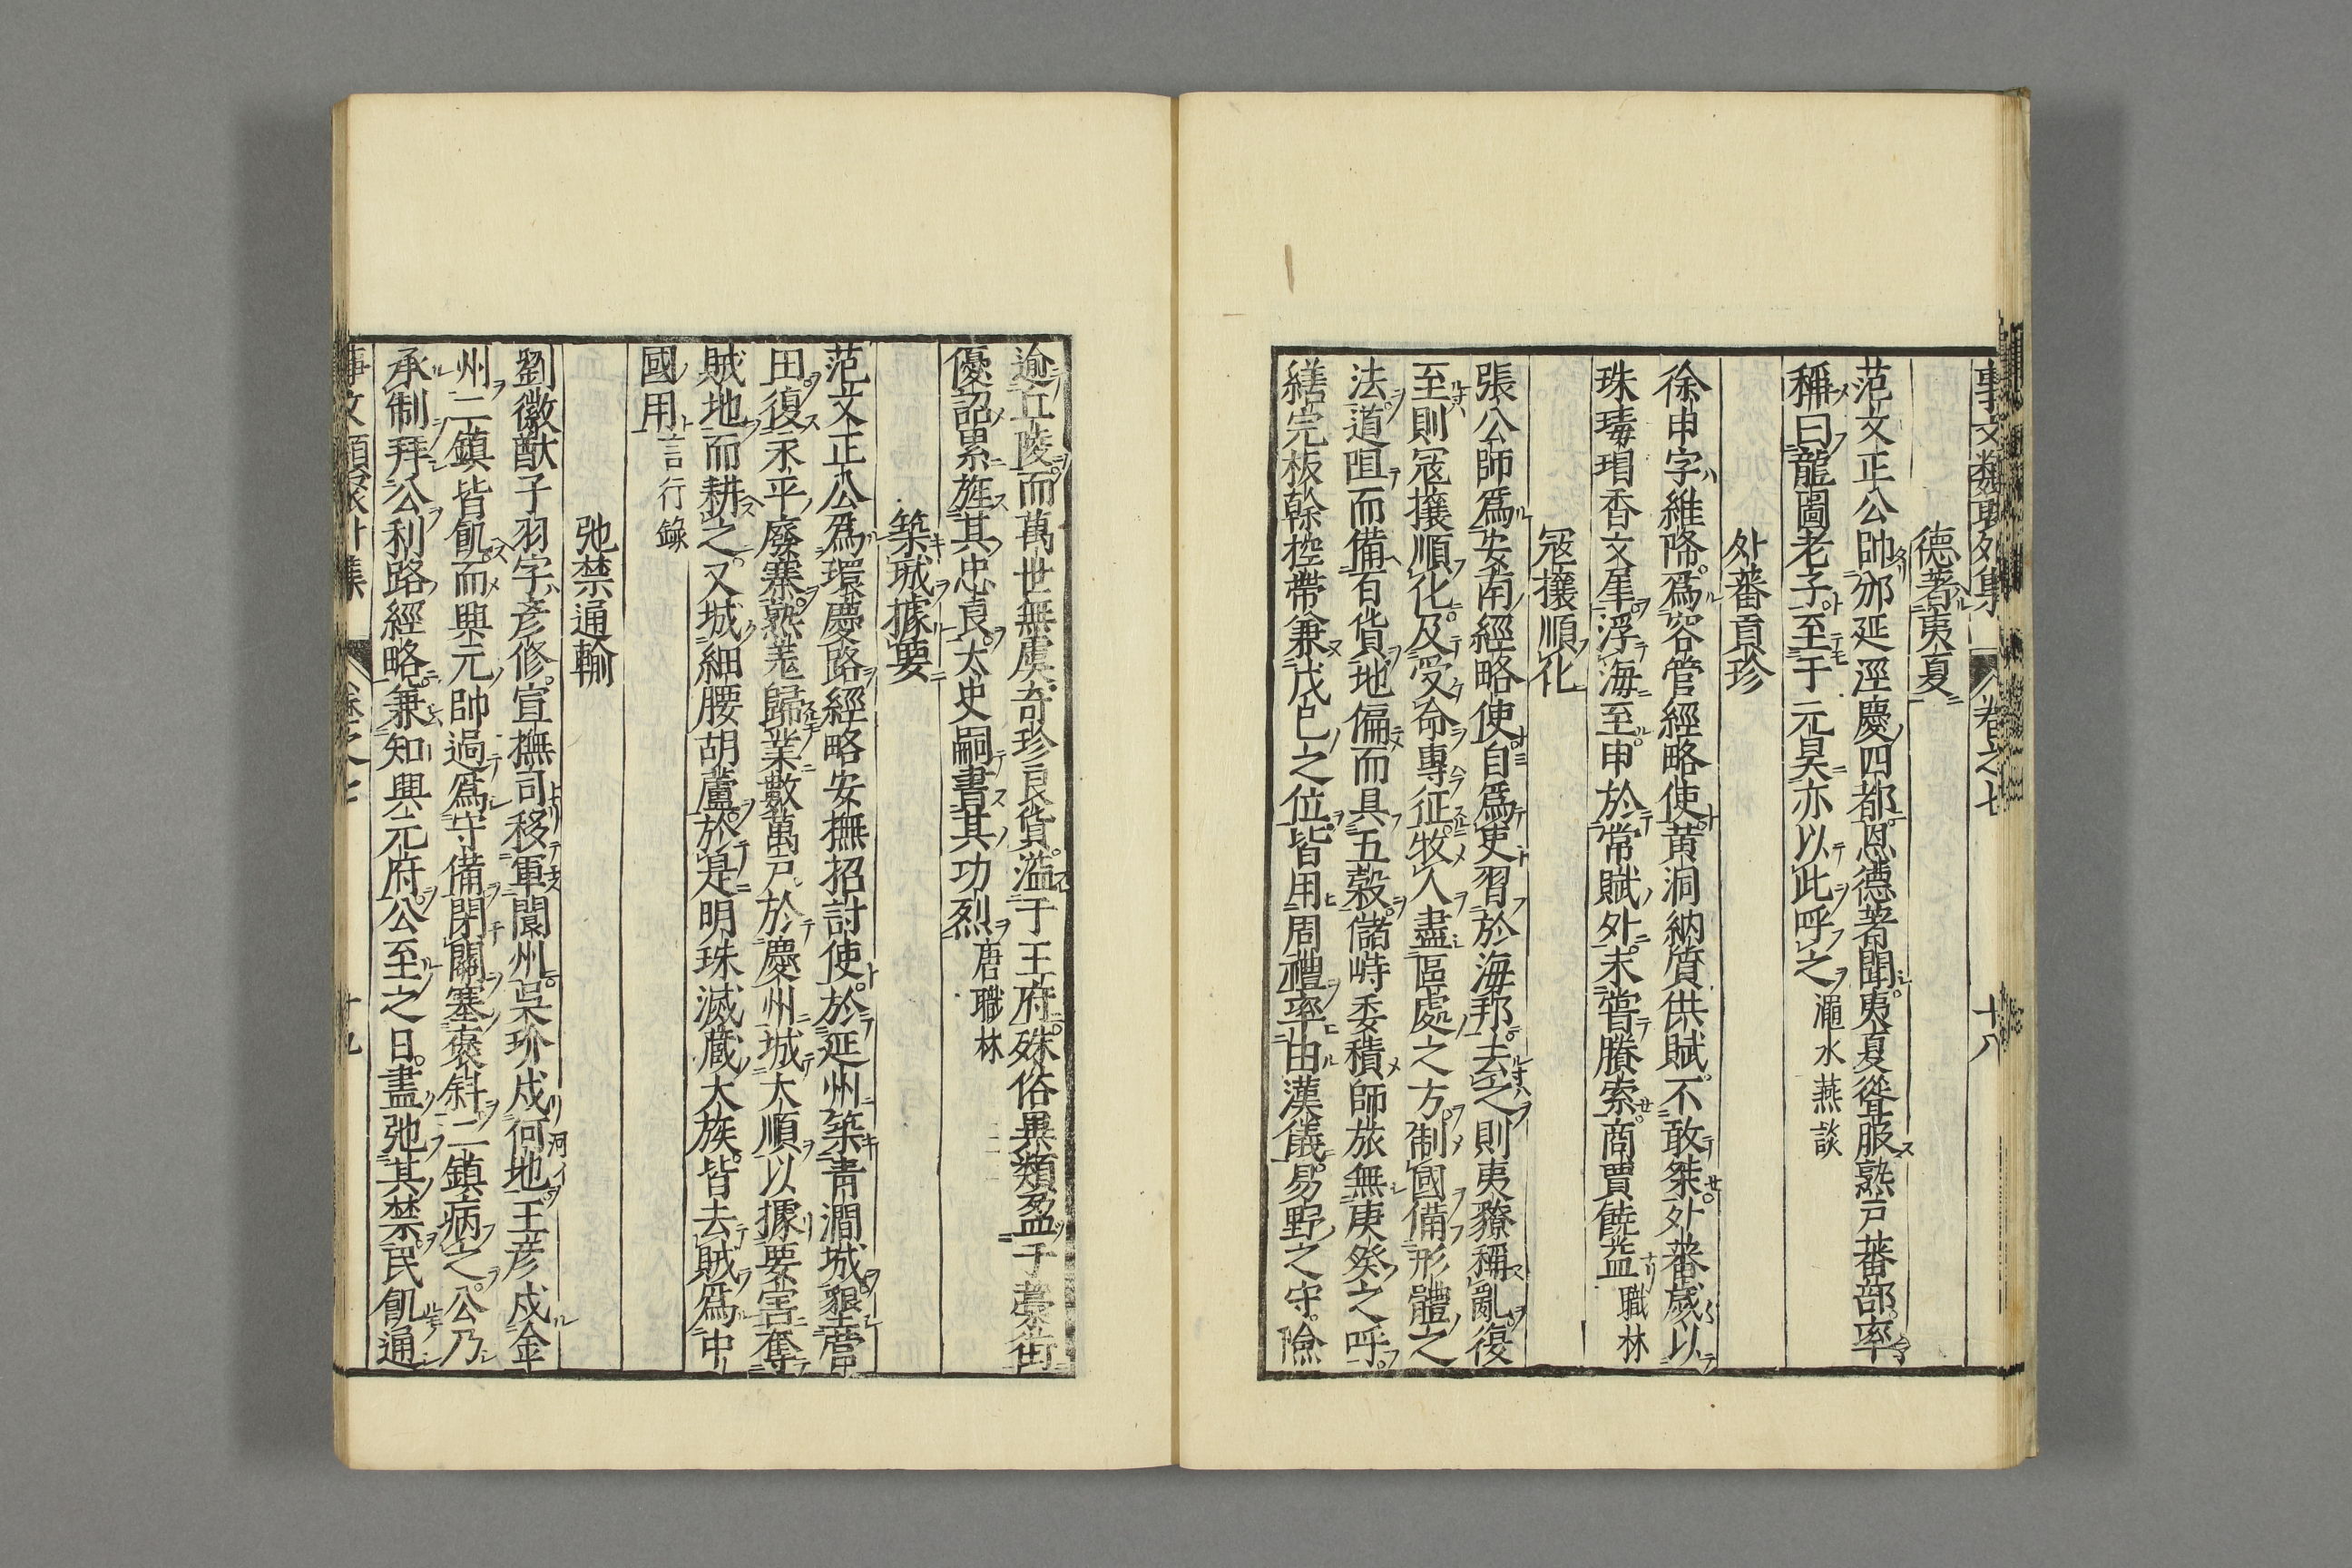 事文類聚外集 卷之七 十八
德著夷夏
范文正公帥邠延涇慶四都恩德著聞夷夏聳服熟戶蕃部率
稱曰龍圖老子至于元昊亦以此呼之 澠水燕談
外蕃貢珍
徐申字維降爲容管經略使黄洞納質供賦不敢桀外蕃歲以
珠瑇瑁香文犀浮海至申於常賦外未嘗賸索商賈饒益 職林
冦攘順化
張公師爲安南經略使自爲吏習於海邦去之則夷獠稱亂復
至則冦攘順化及受命專征牧人盡區處之方制國備形體之
法道阻而備百貨地偏而具五穀儲峙委積師旅無庚癸之呼
繕完板幹控帶兼戊巳之位皆用周禮率由漢儀易野之守險
逾丘陵而萬世無虞奇珍良貨溢于王府殊俗異類盈于藁街
優詔累旌其忠良太史嗣書其功烈 唐職林
築城據要
范文正公爲環慶路經略安撫招討使於延州築青澗城墾營
田復永平廢寨熟羗歸業數萬戶於慶州城大順以據要害奪
賊地而耕之又城細腰胡蘆於是明珠滅藏大族皆去賊爲中
國用 言行錄
弛禁通輸
劉徽猷子羽字彥修宣撫司移軍閬州吳玠戍何地王彦戍金
州二鎮皆飢而興元帥過爲守備閉關塞褒斜二鎮病之公乃
承制拜公利路經略兼知興元府公至之日盡弛其禁民飢通
事文類聚外集 卷之七 十九